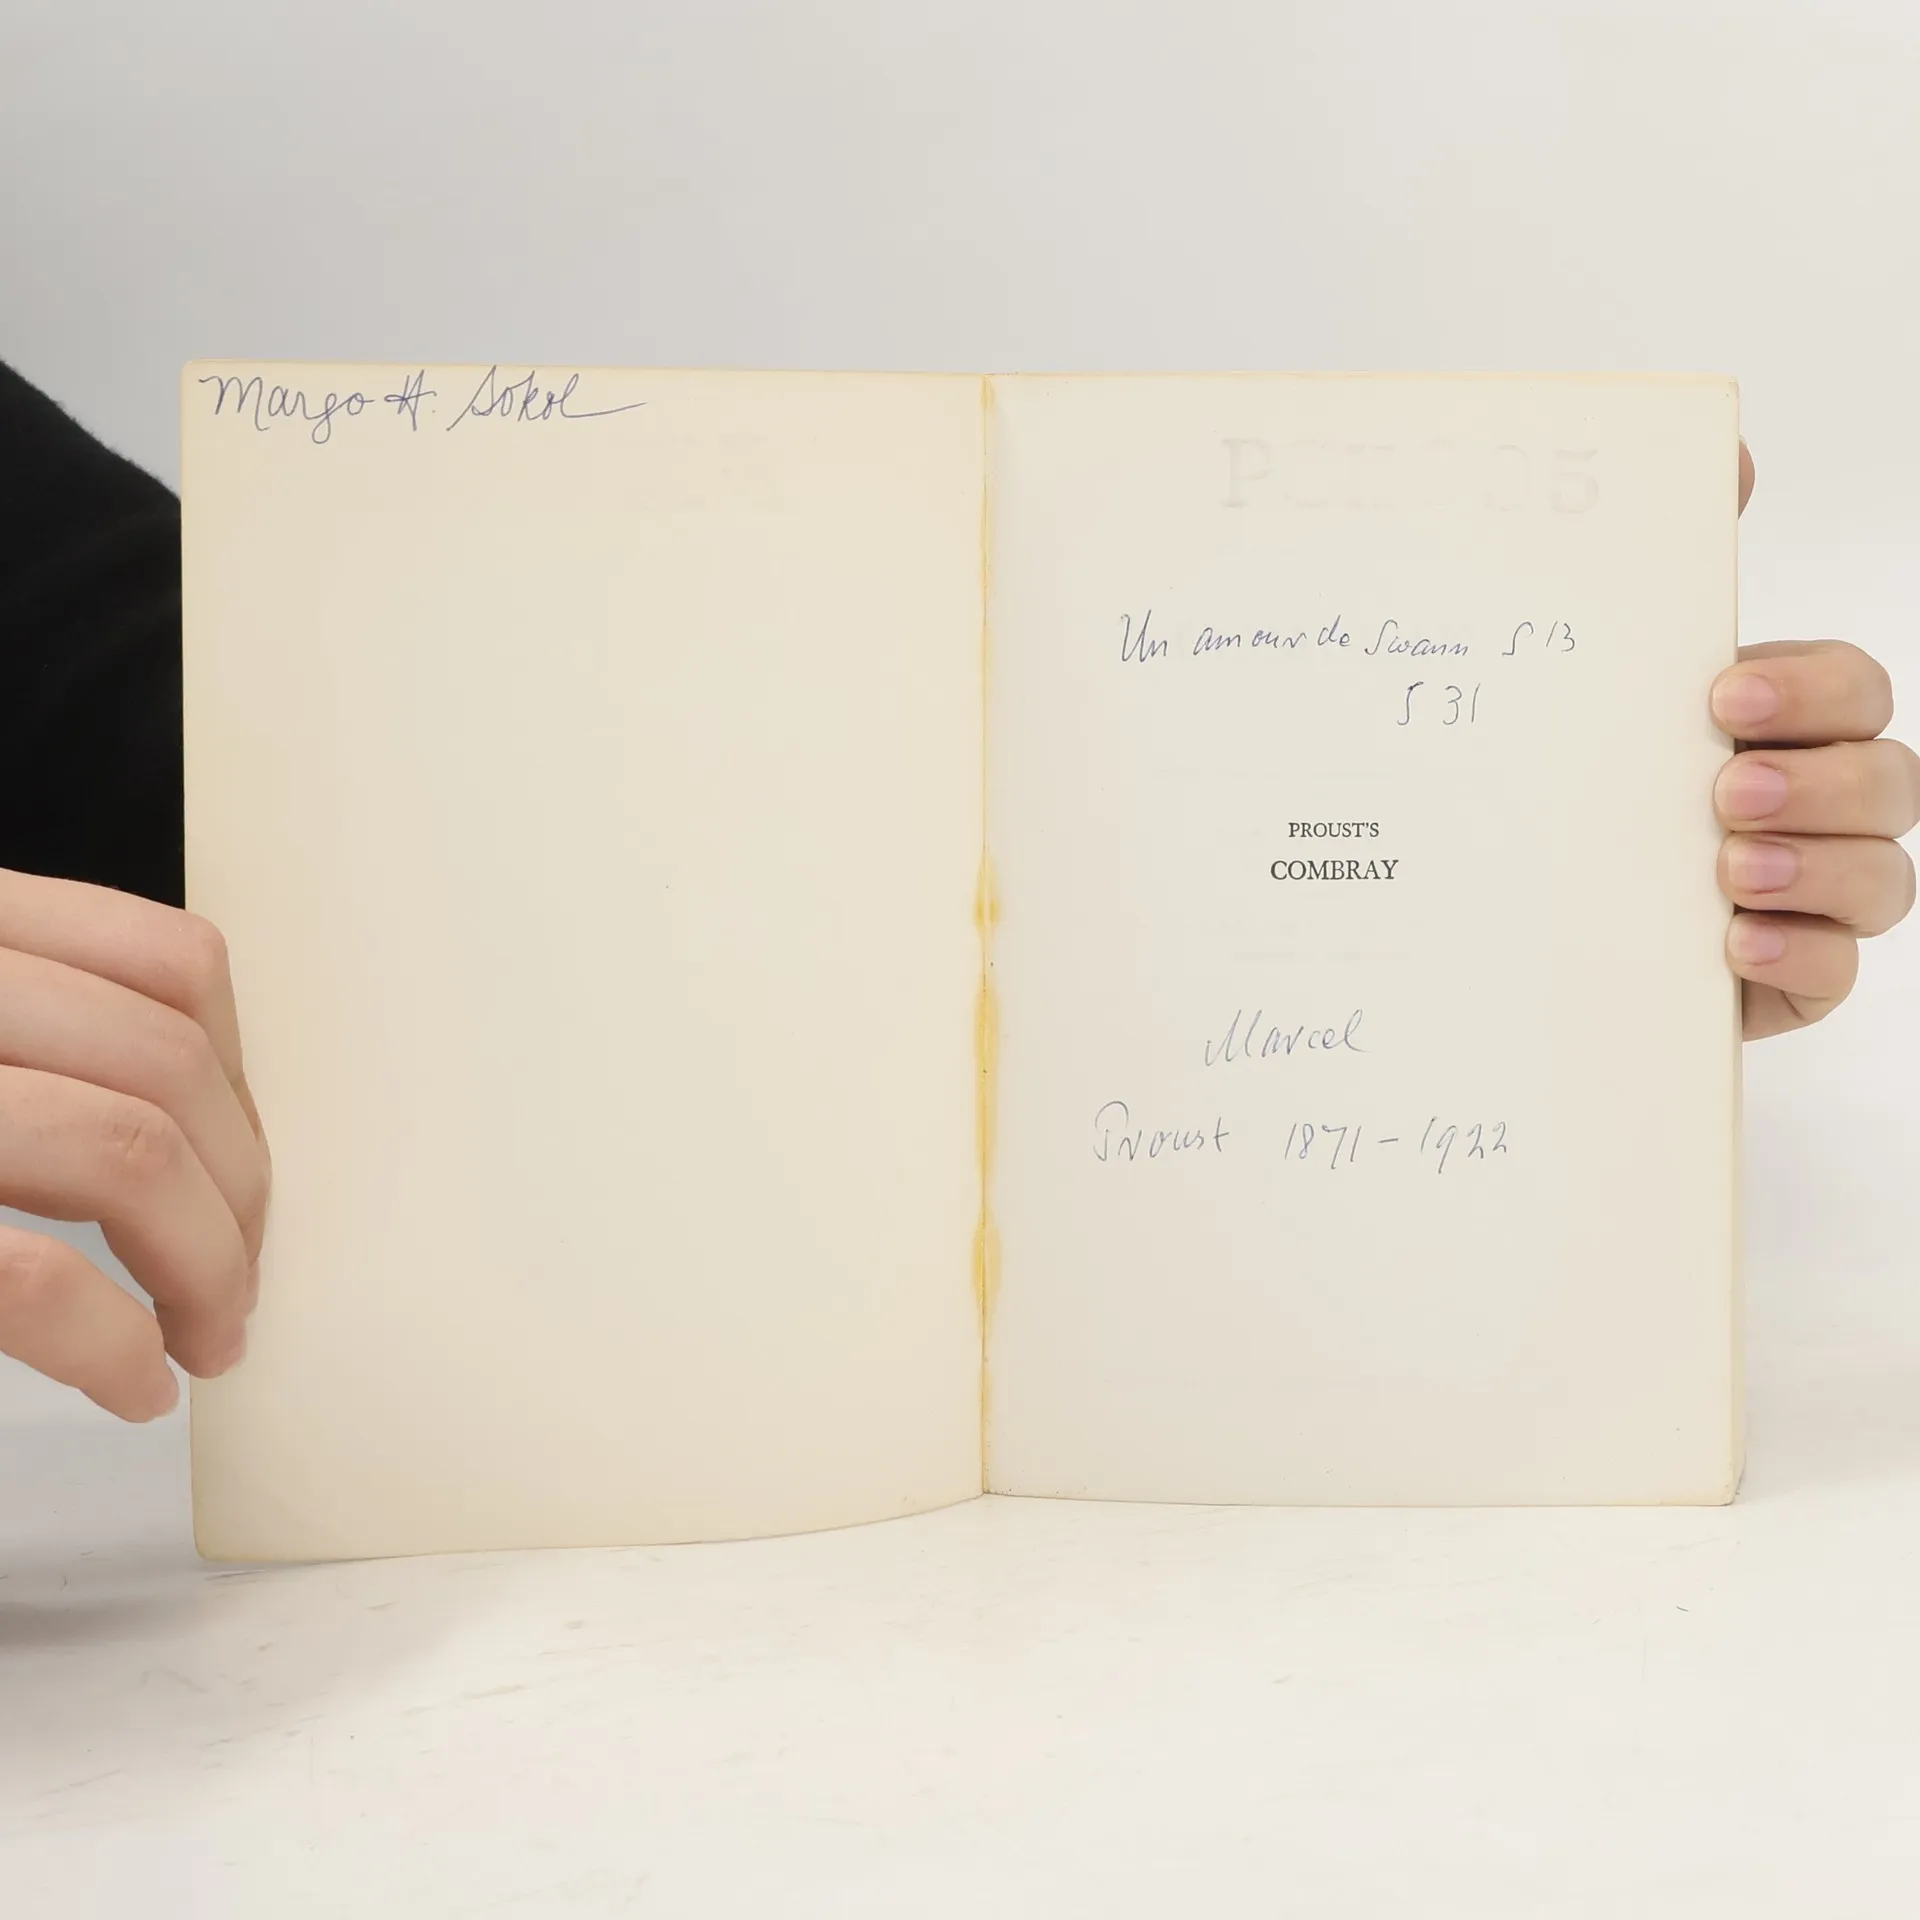 Margo H. Sokol
Un amour de Swann S 13
S 31
PROUST'S
COMBRAY
Marcel
Proust 1871 - 1922